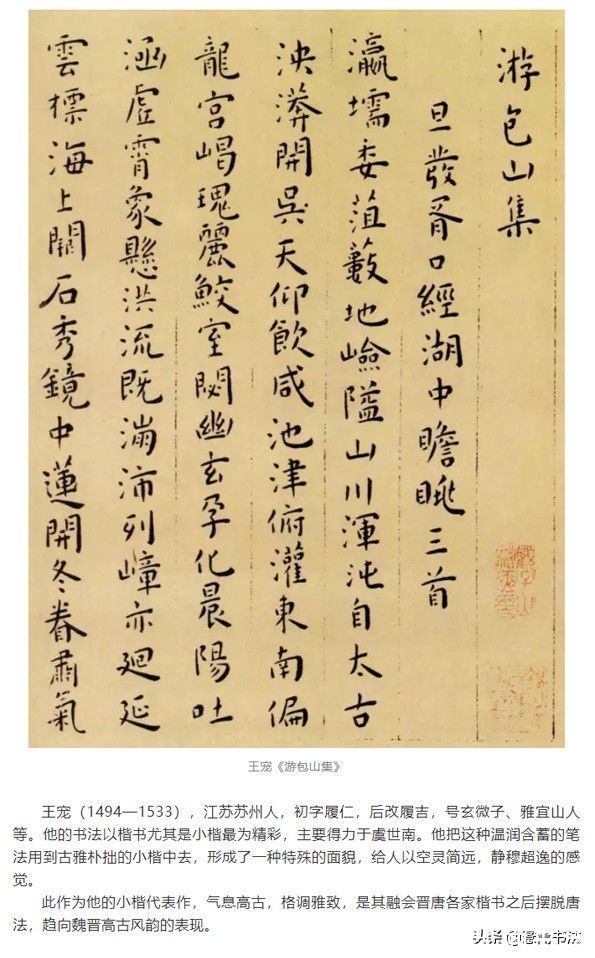 游包山集
旦發胥口經湖中瞻眺三首
瀛壖委菹藪地嶮隘山川渾沌自太古
泱漭開吳天仰飲咸池津俯灌東南偏
龍宮崵瑰麗鮫室閟幽玄孕化晨陽吐
涵虛霄象懸洪流既滿沛列嶂亦迴延
雲標海上關石秀鏡中蓮開冬眷肅氣
王宠《游包山集》
王宠（1494—1533），江苏苏州人，初字履仁，后改履吉，号玄微子、雅宜山人
等。他的书法以楷书尤其是小楷最为精彩，主要得力于虞世南。他把这种温润含蓄的笔
法用到古雅朴拙的小楷中去，形成了一种特殊的面貌，给人以空灵简远，静穆超逸的感
觉。
此作为他的小楷代表作，气息高古，格调雅致，是其融会晋唐各家楷书之后摆脱唐
法，趋向魏晋高古风韵的表现。
头条 书法